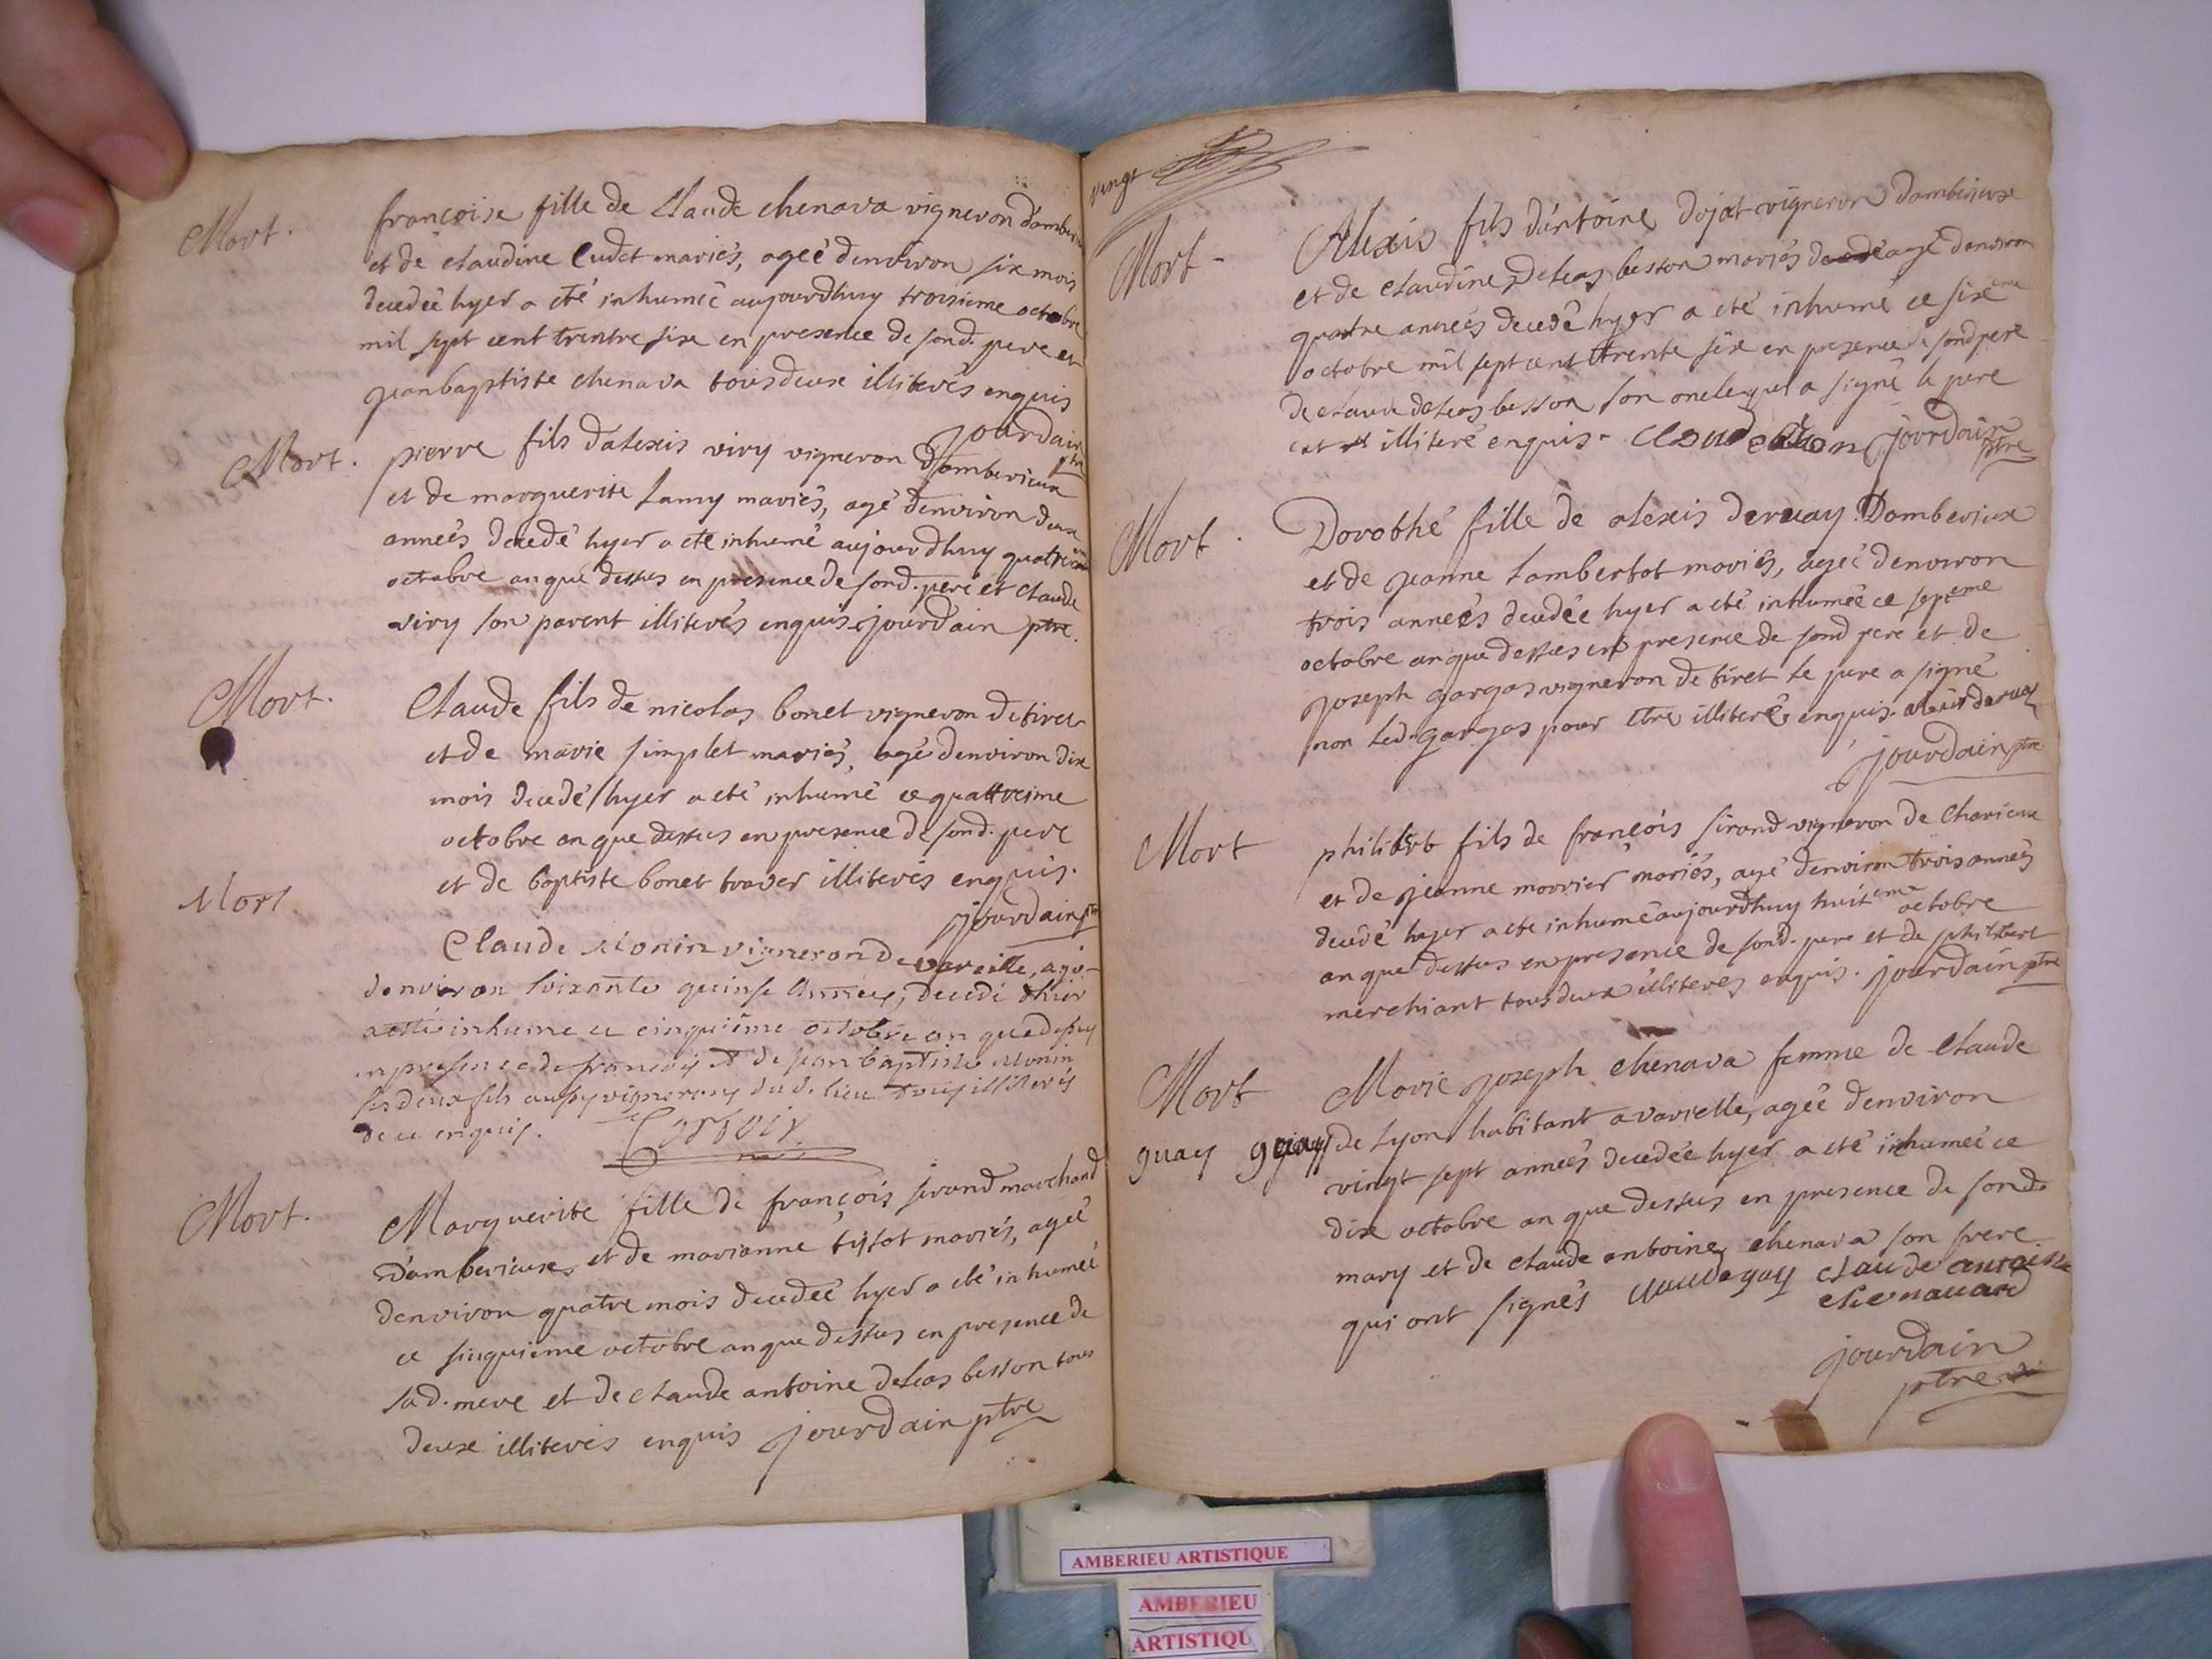 Mort.
françoise fille de Claude chenava vigneron d'amberieux
et de claudine Cudet mariés, ageé d'environ six mois
decedeé hyer a été inhumeé aujourdhuy troisieme octobre
mil sept cent trentre six en presence de sond. pere et
jean baptiste chenava tous deux illiterés enquis
jourdain ptre
Mort.
pierre fils d'alexis viry vigneron d'amberieux
et de marguerite Lamy mariés, agé d'environ deux
anneés decedé hyer a eté inhumé aujourdhuy quatrieme
octobre an que dessus en presence de sond. pere et claude
viry son parent illiterés enquis jourdain ptre.
Mort.
Claude fils de nicolas bonet vigneron de tiret
et de marie simplet mariés, agé d'environ dix
mois decedé hyer a eté inhumé ce quattreime
octobre an que dessus en presence de sond. pere
et de baptiste bonet traver illiterés enquis.
jourdain ptre
Mort
Claude Monin vigneron de vareille, agé
d'environ soixante quinse années, decedé hier
a esté inhume ce cinquiême octobre an que dessus
en presence de francois et de jean baptiste Monin
ses deux fils aussy vignerons dud. lieu tous illiterés
de ce enquis.
Mort.
Marguerite fille de françois sirand marchand
d'amberieux et de marianne tissot mariés, ageé
d'environ quatre mois decedeé hyer a eté inhumeé
ce sinquieme octobre an que dessus en presence de
lad. mere et de claude antoine deleas besson tous
deux illiterés enquis jourdain ptre
vingt
Mort -
Alexis fils d'antoine dojat vigneron d'amberieux
et de claudine deleas besson mariés agé d'environ
quatre anneés decedé hyer a eté inhumé ce sixeme
octobre mil sept cent trente six en presence de sond pere
de claude deleas besson son oncle qui a signé le pere
illiteré enquis. jourdain ptre
Mort.
Dorothé fille de alexis dervay d'amberieux
et de jeanne Lambertot mariés, ageé d'environ
trois anneés decedée hyer a eté inhumeé ce septeme
octobre an que dessus en presence de sond pere et de
joseph gargas vigneron de tiret le pere a signé
non led. gargas pour etre illiteré enquis. alexis dervay
jourdain ptre
Mort
philibert fils de françois sirand vigneron de charieux
et de jeanne morrier mariés, agé d'environ trois anneés
decedé hyer a eté inhumé aujourdhuy huiteme octobre
an que dessus en presence de sond. pere et de philibert
merchiant tous deux illiterés enquis. jourdain ptre
Mort
Marie joseph chenava femme de claude
guay guay de Lyon habitant a varielle, ageé d'environ
vingt sept anneés decedée hyer a eté inhumeé ce
dix octobre an que dessus en presence de sond.
mary et de claude antoine chenava son frere
qui ont signés claude gay claude antoine
chenavard
jourdain
ptre
AMBERIEU ARTISTIQUE
AMBERIEU
ARTISTIQU